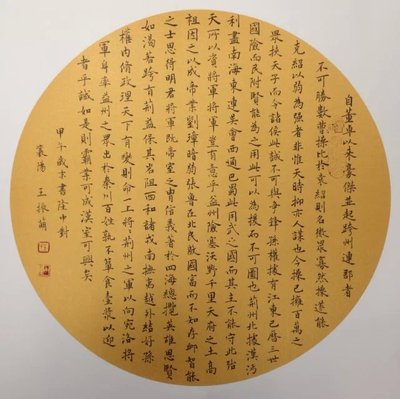 自董卓以来豪傑並起跨州連郡者
不可勝數曹操比於袁紹則名微眾寡然操遂能
克紹以弱為強者非惟天時抑亦人謀也今操已擁百萬之
眾挾天子而令諸侯此誠不可與爭鋒孫權據有江東已歷三世
國險而民附賢能為之用此可以為援而不可圖也荊州北據漢沔
利盡南海東連吳會西通巴蜀此用武之國而其主不能守此殆
天所以資將軍將軍豈有意乎益州險塞沃野千里天府之土高
祖因之以成帝業劉璋暗弱張魯在北民殷國富而不知存卹智能
之士思得明君將軍既帝室之胄信義著於四海總攬英雄思賢
如渴若跨有荊益保其岩阻西和諸戎南撫夷越外結好孫
權內脩政理天下有變則命一上將將荊州之軍以向宛洛將
軍身率益州之眾出於秦川百姓孰不簞食壺漿以迎
者乎誠如是則霸業可成漢室可興矣
甲午歲末書隆中對
襄陽 王振